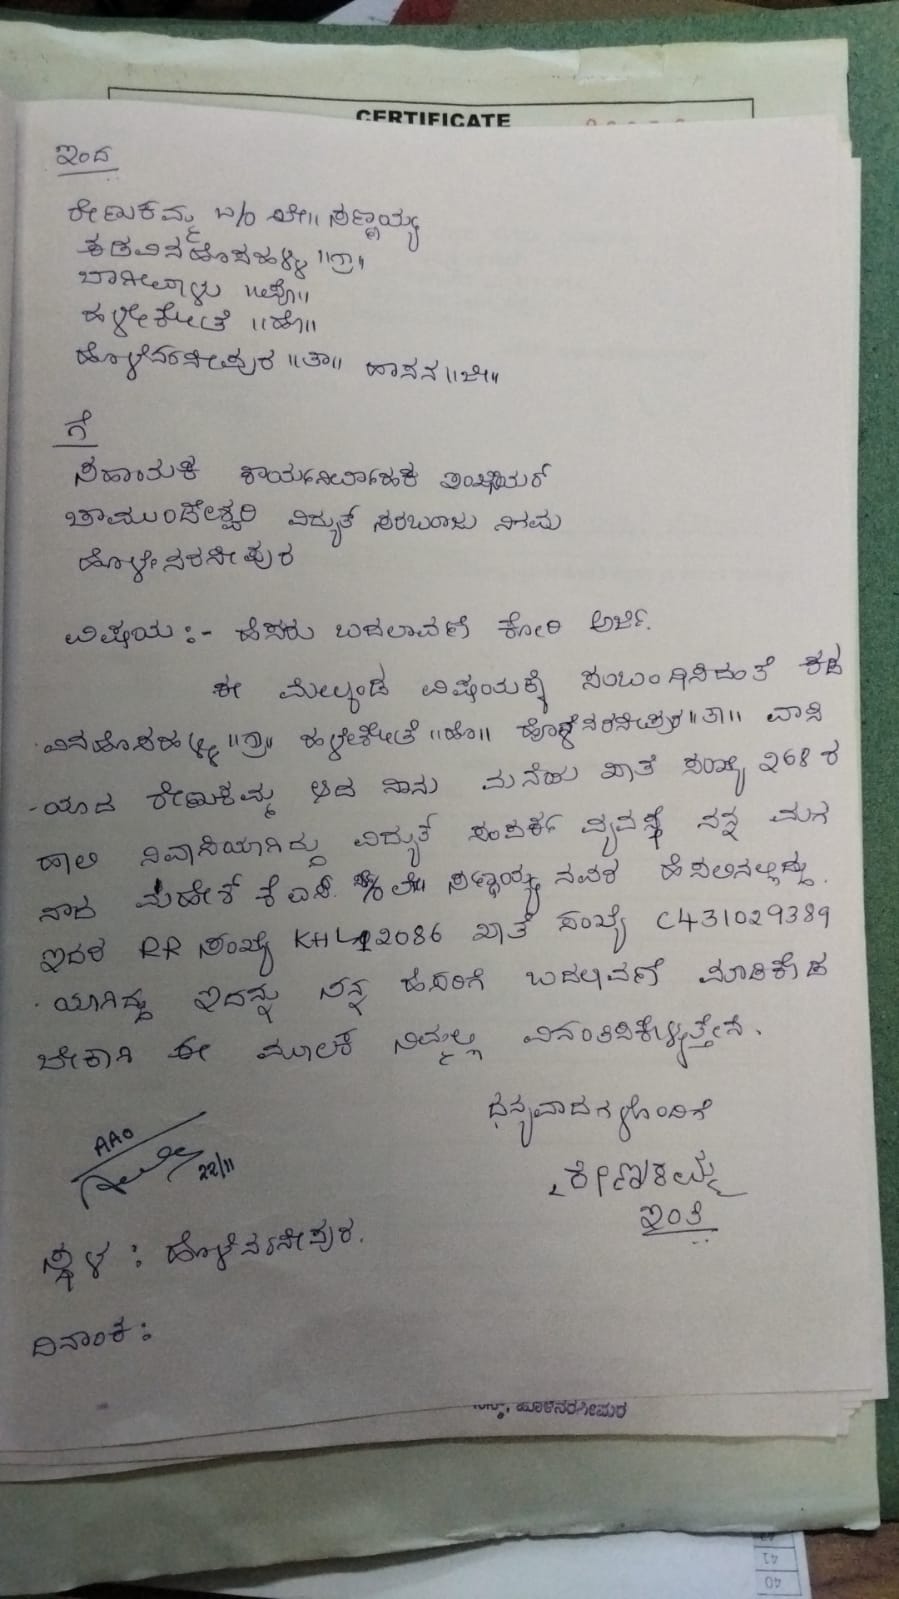 CERTIFICATE
ಇಂದ
ರೇಣುಕಮ್ಮ W/o ಲೇ|| ಸಣ್ಣಯ್ಯ
ಕಡವಿನಹೊಸಹಳ್ಳಿ ||ಗ್ರಾ||
ಬಾಗೀವಾಳು ||ಪೋ||
ಹಳ್ಳೀಕೋತೆ ||ಹೊ||
ಹೊಳೆನರಸೀಪುರ ||ತಾ|| ಹಾಸನ ||ಜಿ||
ಗೆ
ಸಹಾಯಕ ಕಾರ್ಯನಿರ್ವಾಹಕ ಇಂಜಿನಿಯರ್
ಚಾಮುಂಡೇಶ್ವರಿ ವಿದ್ಯುತ್ ಸರಬರಾಜು ನಿಗಮ
ಹೊಳೇನರಸೀಪುರ
ವಿಷಯ :- ಹೆಸರು ಬದಲಾವಣೆ ಕೋರಿ ಅರ್ಜಿ.
ಈ ಮೇಲ್ಕಂಡ ವಿಷಯಕ್ಕೆ ಸಂಬಂಧಿಸಿದಂತೆ ಕಡ
ವಿನಹೊಸಹಳ್ಳಿ ||ಗ್ರಾ|| ಹಳ್ಳೇಕೋತೆ ||ಹೊ|| ಹೊಳೆನರಸೀಪುರ ||ತಾ|| ವಾಸಿ
ಯಾದ ರೇಣುಕಮ್ಮ ಆದ ನಾನು ಮನೆಯ ಖಾತೆ ಸಂಖ್ಯೆ 268 ರ
ಹಾಲಿ ನಿವಾಸಿಯಾಗಿದ್ದು ವಿದ್ಯುತ್ ಸಂಪರ್ಕ ವ್ಯವಸ್ಥೆ ನನ್ನ ಮಗ
ನಾದ ಮಹೇಶ್ ಕೆ ಎಸ್. S/o ಲೇ|| ಸಣ್ಣಯ್ಯ ನವರ ಹೆಸರಿನಲ್ಲಿದ್ದು.
ಇದರ RR ಸಂಖ್ಯೆ KHL12086 ಖಾತೆ ಸಂಖ್ಯೆ C431029389
ಯಾಗಿದ್ದು ಇದನ್ನು ನನ್ನ ಹೆಸರಿಗೆ ಬದಲಾವಣೆ ಮಾಡಿಕೊಡ
ಬೇಕಾಗಿ ಈ ಮೂಲಕ ನಿಮ್ಮಲ್ಲಿ ವಿನಂತಿಸಿಕೊಳ್ಳುತ್ತೇನೆ.
ಧನ್ಯವಾದಗಳೊಂದಿಗೆ
AAO
22/11
ರೇಣುಕಮ್ಮ
ಇಂತಿ
ಸ್ಥಳ : ಹೊಳೆನರಸೀಪುರ.
ದಿನಾಂಕ :
ಹೊಳೆನರಸೀಪುರ
41
40